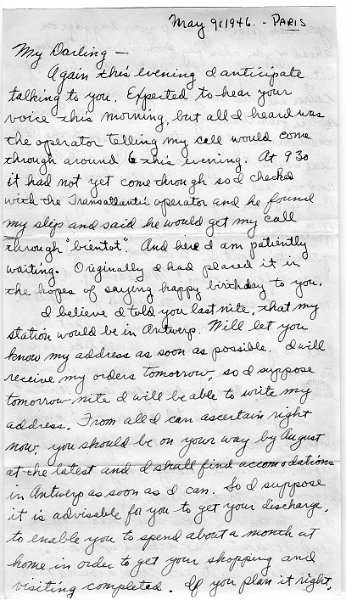 May 9, 1946. - PARIS
My Darling —
Again this evening I anticipate
talking to you. Expected to hear your
voice this morning, but all I heard was
the operator telling my call would come
through around 6 this evening. At 930
it had not yet come through so I checked
with the Transatlantic operator and he found
my slip and said he would get my call
through "bientot". And here I am patiently
waiting. Originally I had placed it in
the hopes of saying happy birthday to you.
I believe I told you last nite, that my
station would be in Antwerp. Will let you
know my address as soon as possible. I will
receive my orders tomorrow, so I suppose
tomorrow nite I will be able to write my
address. From all I can ascertain right
now, you should be on your way by August
at the latest and I shall find accomodations
in Antwerp as soon as I can. So I suppose
it is advisable for you to get your discharge,
to enable you to spend about a month at
home in order to get your shopping and
visiting completed. If you plan it right,